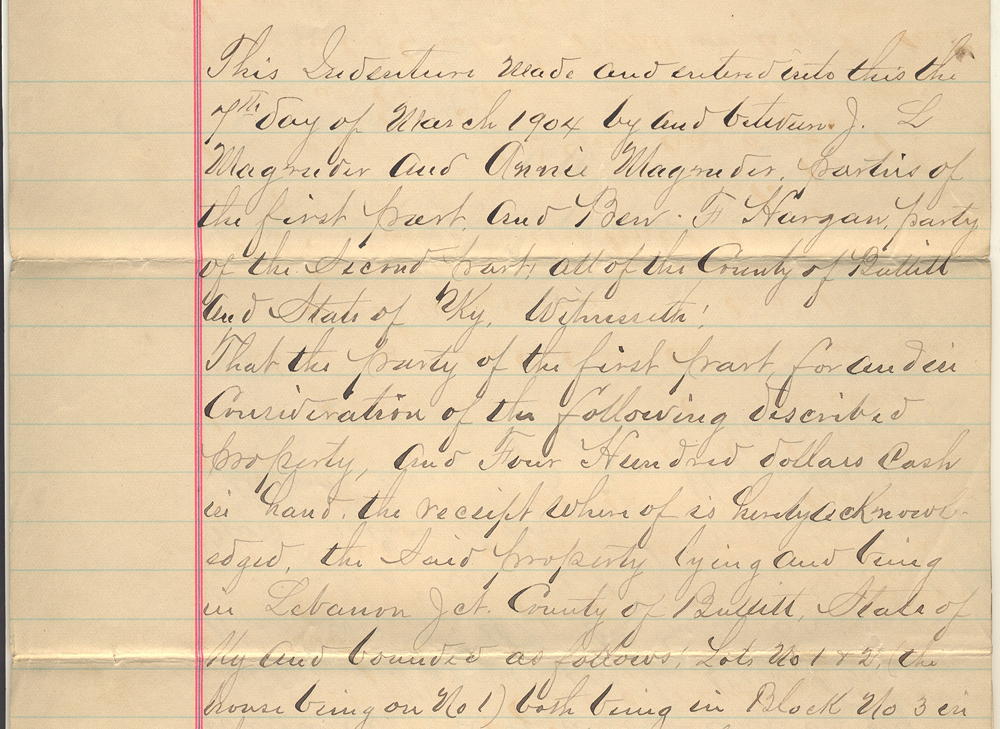 This Indenture made and entered into this the
7th day of March 1904 by and between J. L
Magruder and Annie Magruder, parties of
the first part, and Ben. F Hargan, party
of the Second part, all of the County of Bullitt
and State of Ky, Witnesseth;
That the party of the first part, for and in
Consideration of the following described
property, and Four Hundred dollars Cash
in hand, the receipt where of is hereby acknowl-
edged, the Said property lying and being
in Lebanon Jct. County of Bullitt, State of
Ky and bounded as follows; Lots No 1 & 2, (the
house being on No 1) both being in Block No 3 in